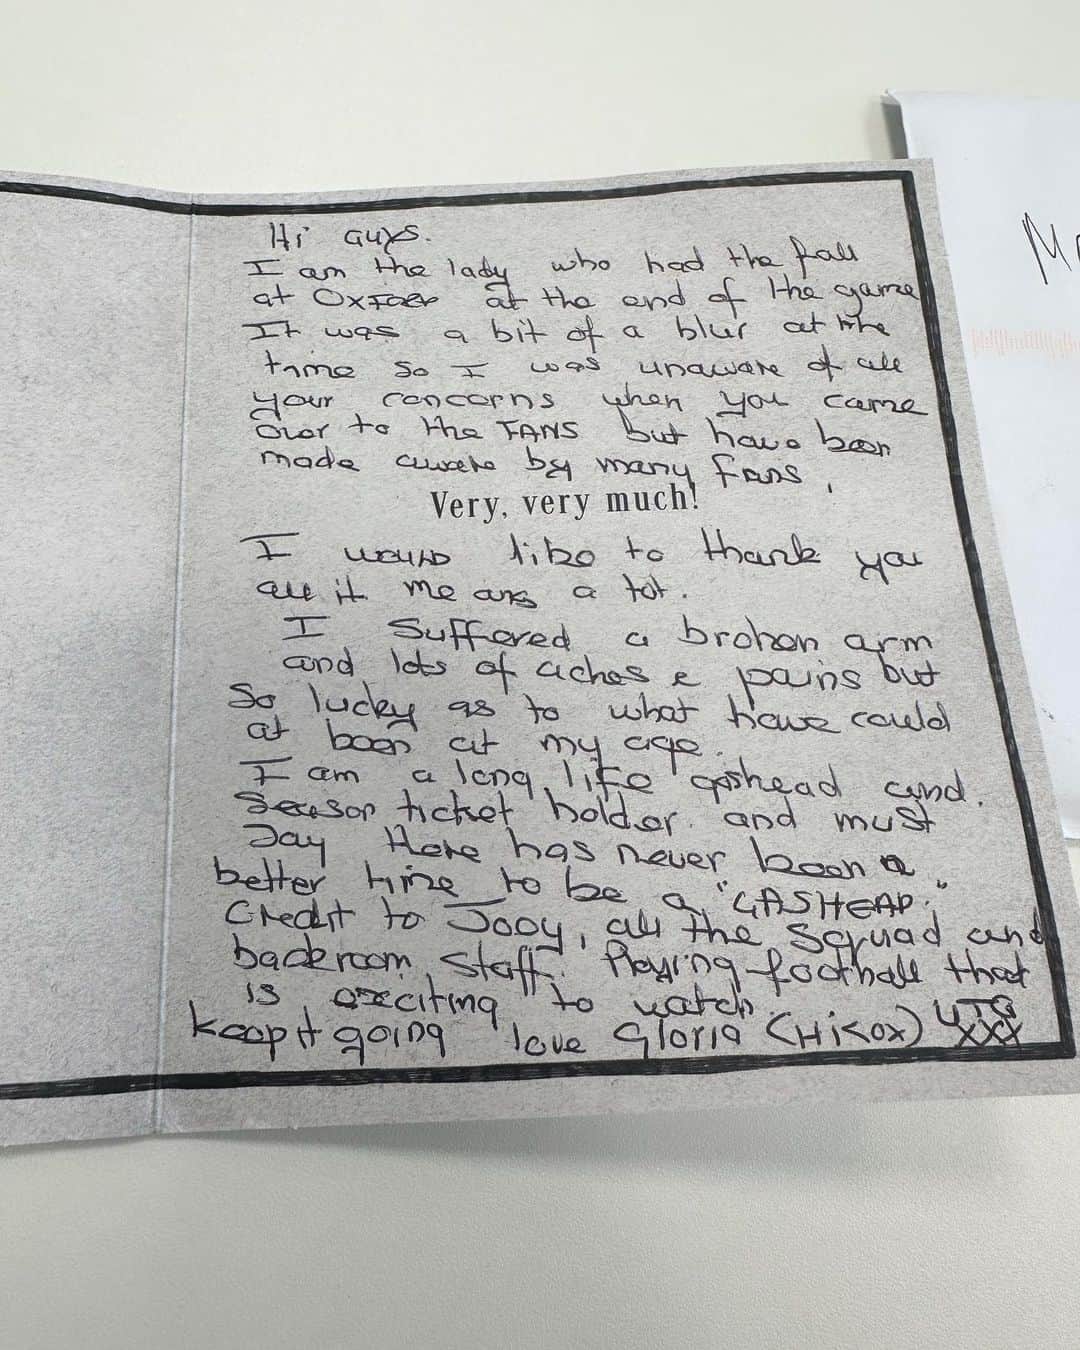 Hi Guys.
I am the lady who had the fall
at Oxford at the end of the game
It was a bit of a blur at the
time so I was unaware of all
your concerns when you came
over to the FANS but have been
made aware by many fans.
Very, very much!
I would like to thank you
all it means a lot.
I suffered a broken arm
and lots of aches & pains but
so lucky as to what have could
at been at my age.
I am a long life gashead and.
Season ticket holder. and must
say there has never been a
better time to be a "GASHEAD."
Credit to Joey, all the squad and
backroom staff. Playing football that
is exciting to watch.
keep it going love Gloria (Hikox) UTG
xxx
M